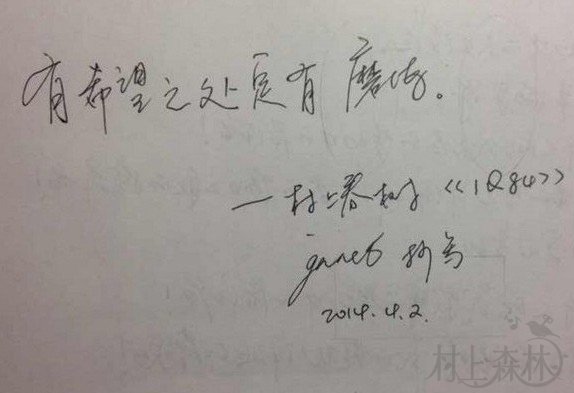 有希望之处定有磨练。
—村上春树《1Q84》
janes 抄写
2014.4.2.
村上森林